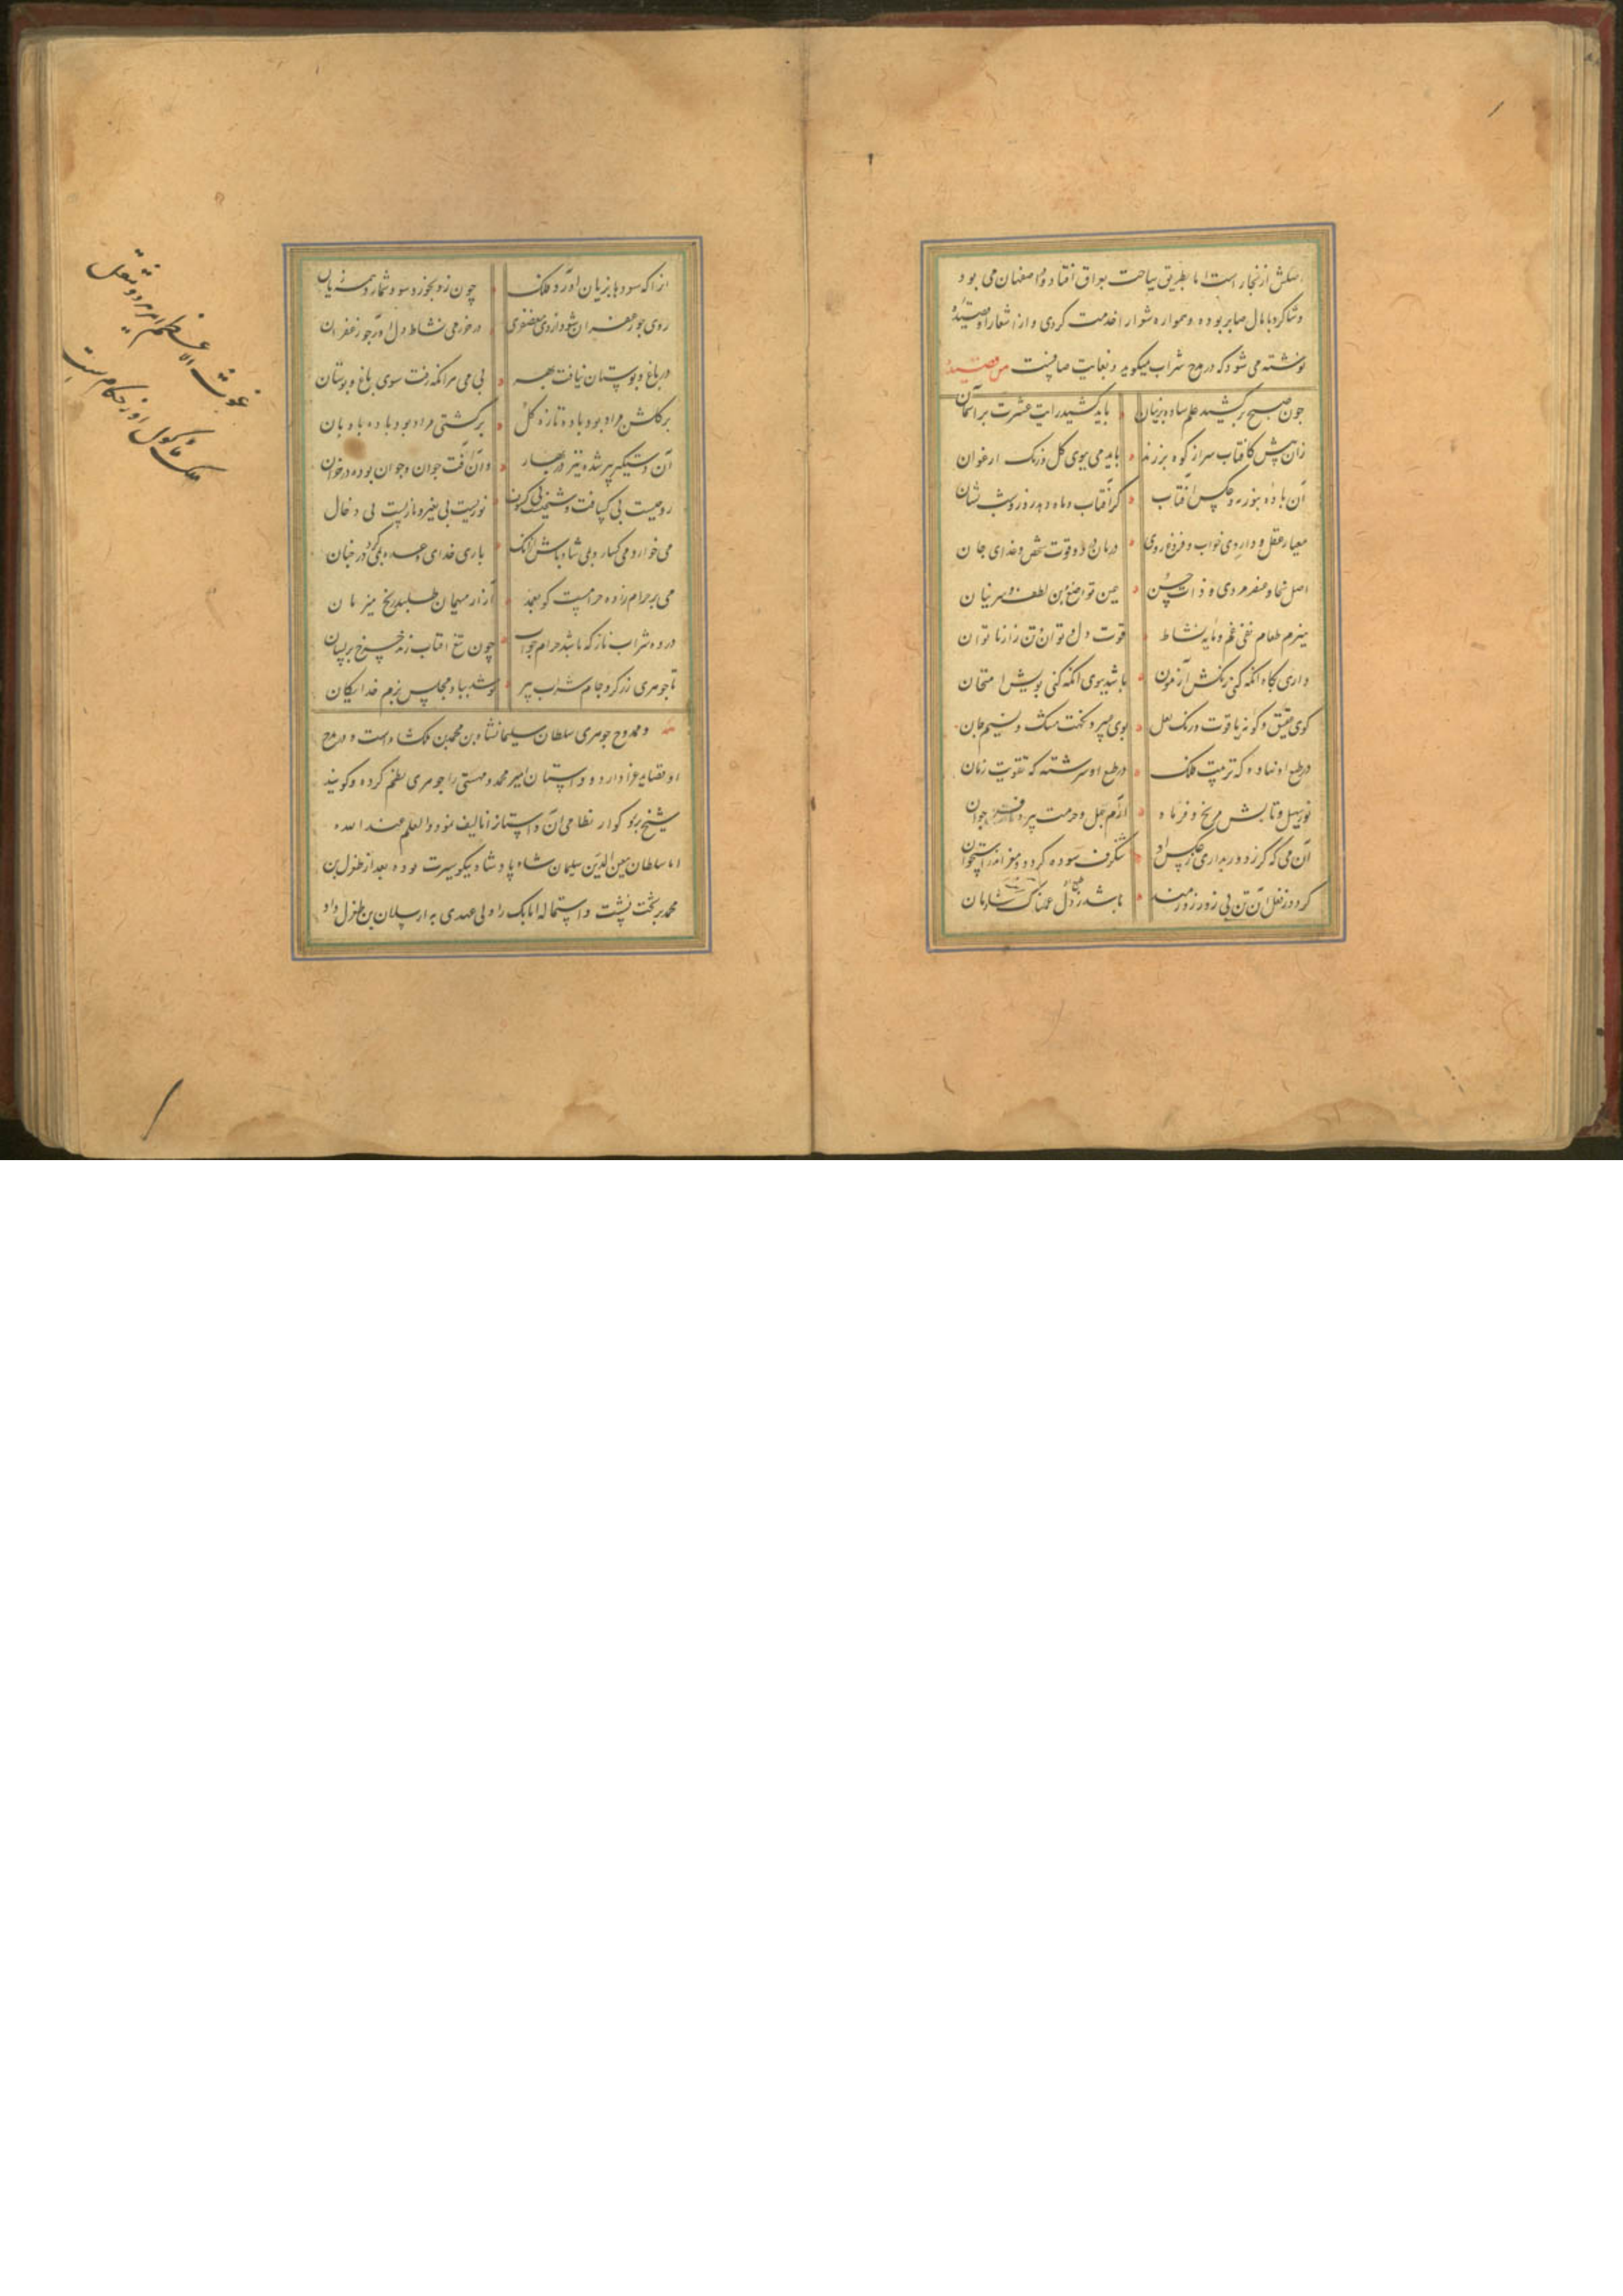 اصلش از بخار است اما بطریق سیاحت بعراق افتاده و اصفهان می بود
و شاکرد با مال صابر بوده و همواره شعرا را خدمت کردی و از اشعار او قصیدهٔ
نوشته می شود که در مدح شراب میکوید و بغایت صافیست من قصیده
چون صبح برکشید علم ساده پرنیان باید کشید رایت عشرت بر آسمان
زان پیش کافتاب سر از کوه برزند باید می ببوی کل و رنک ارغوان
آن باده بنور و عکس آفتاب کز آفتاب و ماه دهد روز و شب نشان
معیار عقل و داروی خواب و فروغ روی درمان درد و قوت شخص و غذای جان
اصل سخا و عنصر مردی و ذات حسن عین تواضع و بن لطف و سر بیان
هضم طعام نفی غم و مایه نشاط قوت دل و توان تن زار ناتوان
داری بکاه آنکه کنی رنکش آزمون باشد ببوی آنکه کنی بویش امتحان
کوی عقیق و کونه یاقوت و رنک لعل بوی عبیر و نکهت مشک و نسیم جان
در طبع او نهاده که تربیت فلک در طبع او سرشته که تقویت زمان
نور سهیل و تابش مریخ و فر ماه آزرم جهل و حرمت پیر و جوان
آن می که کر ز دور بداری ز عکس او شنکرف سوده کردد مغز اندر استخوان
کردد ز فعل آن تن بی زور زورمند باشد ز طبع آن دل غمناک شادمان
آنرا که سودها بزیان آورد فلک چون زو بخورد سود شمارد همه زیان
روی چو زعفران شود از وی معصفری در خورمی نشاط دل آورد چو زعفران
در باغ و بوستان نیافت بهر بی می مر آنکه رفت سوی باغ و بوستان
بر کلشن مراد بود باده تازه کل بر کشتی مراد بود باده بادبان
آن دستکیر پیر شده تیز در بهار و آن آفت جوان و جوان بوده در خزان
روحیست بی کیافت و شمسیست بی کسوف نوریست بی تغیر و ناریست بی دخان
می خوار و می کسار و بمی شاد باش از آنک باری خدای وعده بمی کرد در جنان
می بر حرام زاده حرامست کو بعمد آزار میهمان طلبد رنج میزبان
در ده شراب ناز که باشد حرام خواب چون تیغ آفتاب زند چرخ بر فسان
تا جوهری زر کرد جام شراب پر نوشد بیاد مجلس بزم خدایکان
و ممدوح جوهری سلطان سلیمانشاه بن محمد بن ملکشاه است و در مدح
او قصاید غرا دارد و داستان امیر محمد و مهستی را جوهری نظم کرده و کویند
شیخ بزرکوار نظامی آن داستانرا تالیف نموده و العلم عند الله
اما سلطان معین الدین سلیمان شاه پادشاه نیکو سیرت بوده بعد از طغرل بن
محمد بر تخت نشست و استماله اتابک را ولی عهدی به ارسلان بن طغرل داد
غوث الاعظم